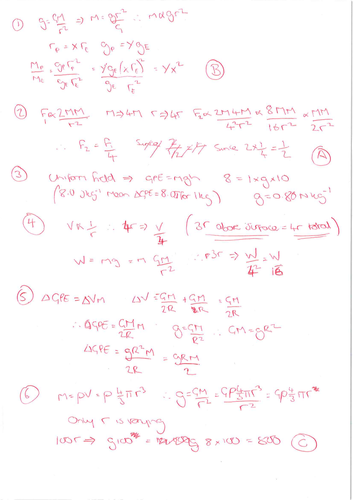 ① g = GM/r² ⇒ M = gr²/G ∴ M α gr²
r_P = x r_E g_P = Y g_E
M_P/M_E = g_P r_P²/g_E r_E² = Y g_E (x r_E)²/g_E r_E² = Yx² Ⓑ
② F₁ α 2MM/r² M→4M r→4r F₂ α 2M4M/4²r² α 8MM/16r² α MM/2r²
∴ F₂ = F₁/4 since 2×1/4 = 1/2 Ⓐ
③ Uniform field ⇒ GPE = mgh 8 = 1×g×10
(8.0 Jkg⁻¹ mean ΔGPE = 8.0J for 1kg) g = 0.80 Nkg⁻¹
④ V α 1/r ∴ 4r ⇒ V/4 (3r above surface = 4r total)
W = mg = m GM/r² ⇒ W/4² = W/16
⑤ ΔGPE = ΔVm ΔV = -GM/2R + GM/R = GM/2R
∴ ΔGPE = GMm/2R g = GM/R² ∴ GM = gR²
ΔGPE = gR²M/2R = gRM/2
⑥ M = ρV = ρ 4/3 πr³ ∴ g = GM/r² = Gρ 4/3 πr³/r² = Gρ 4/3 πr
Only r is varying
100r ⇒ g100 8×100 = 800 Ⓒ